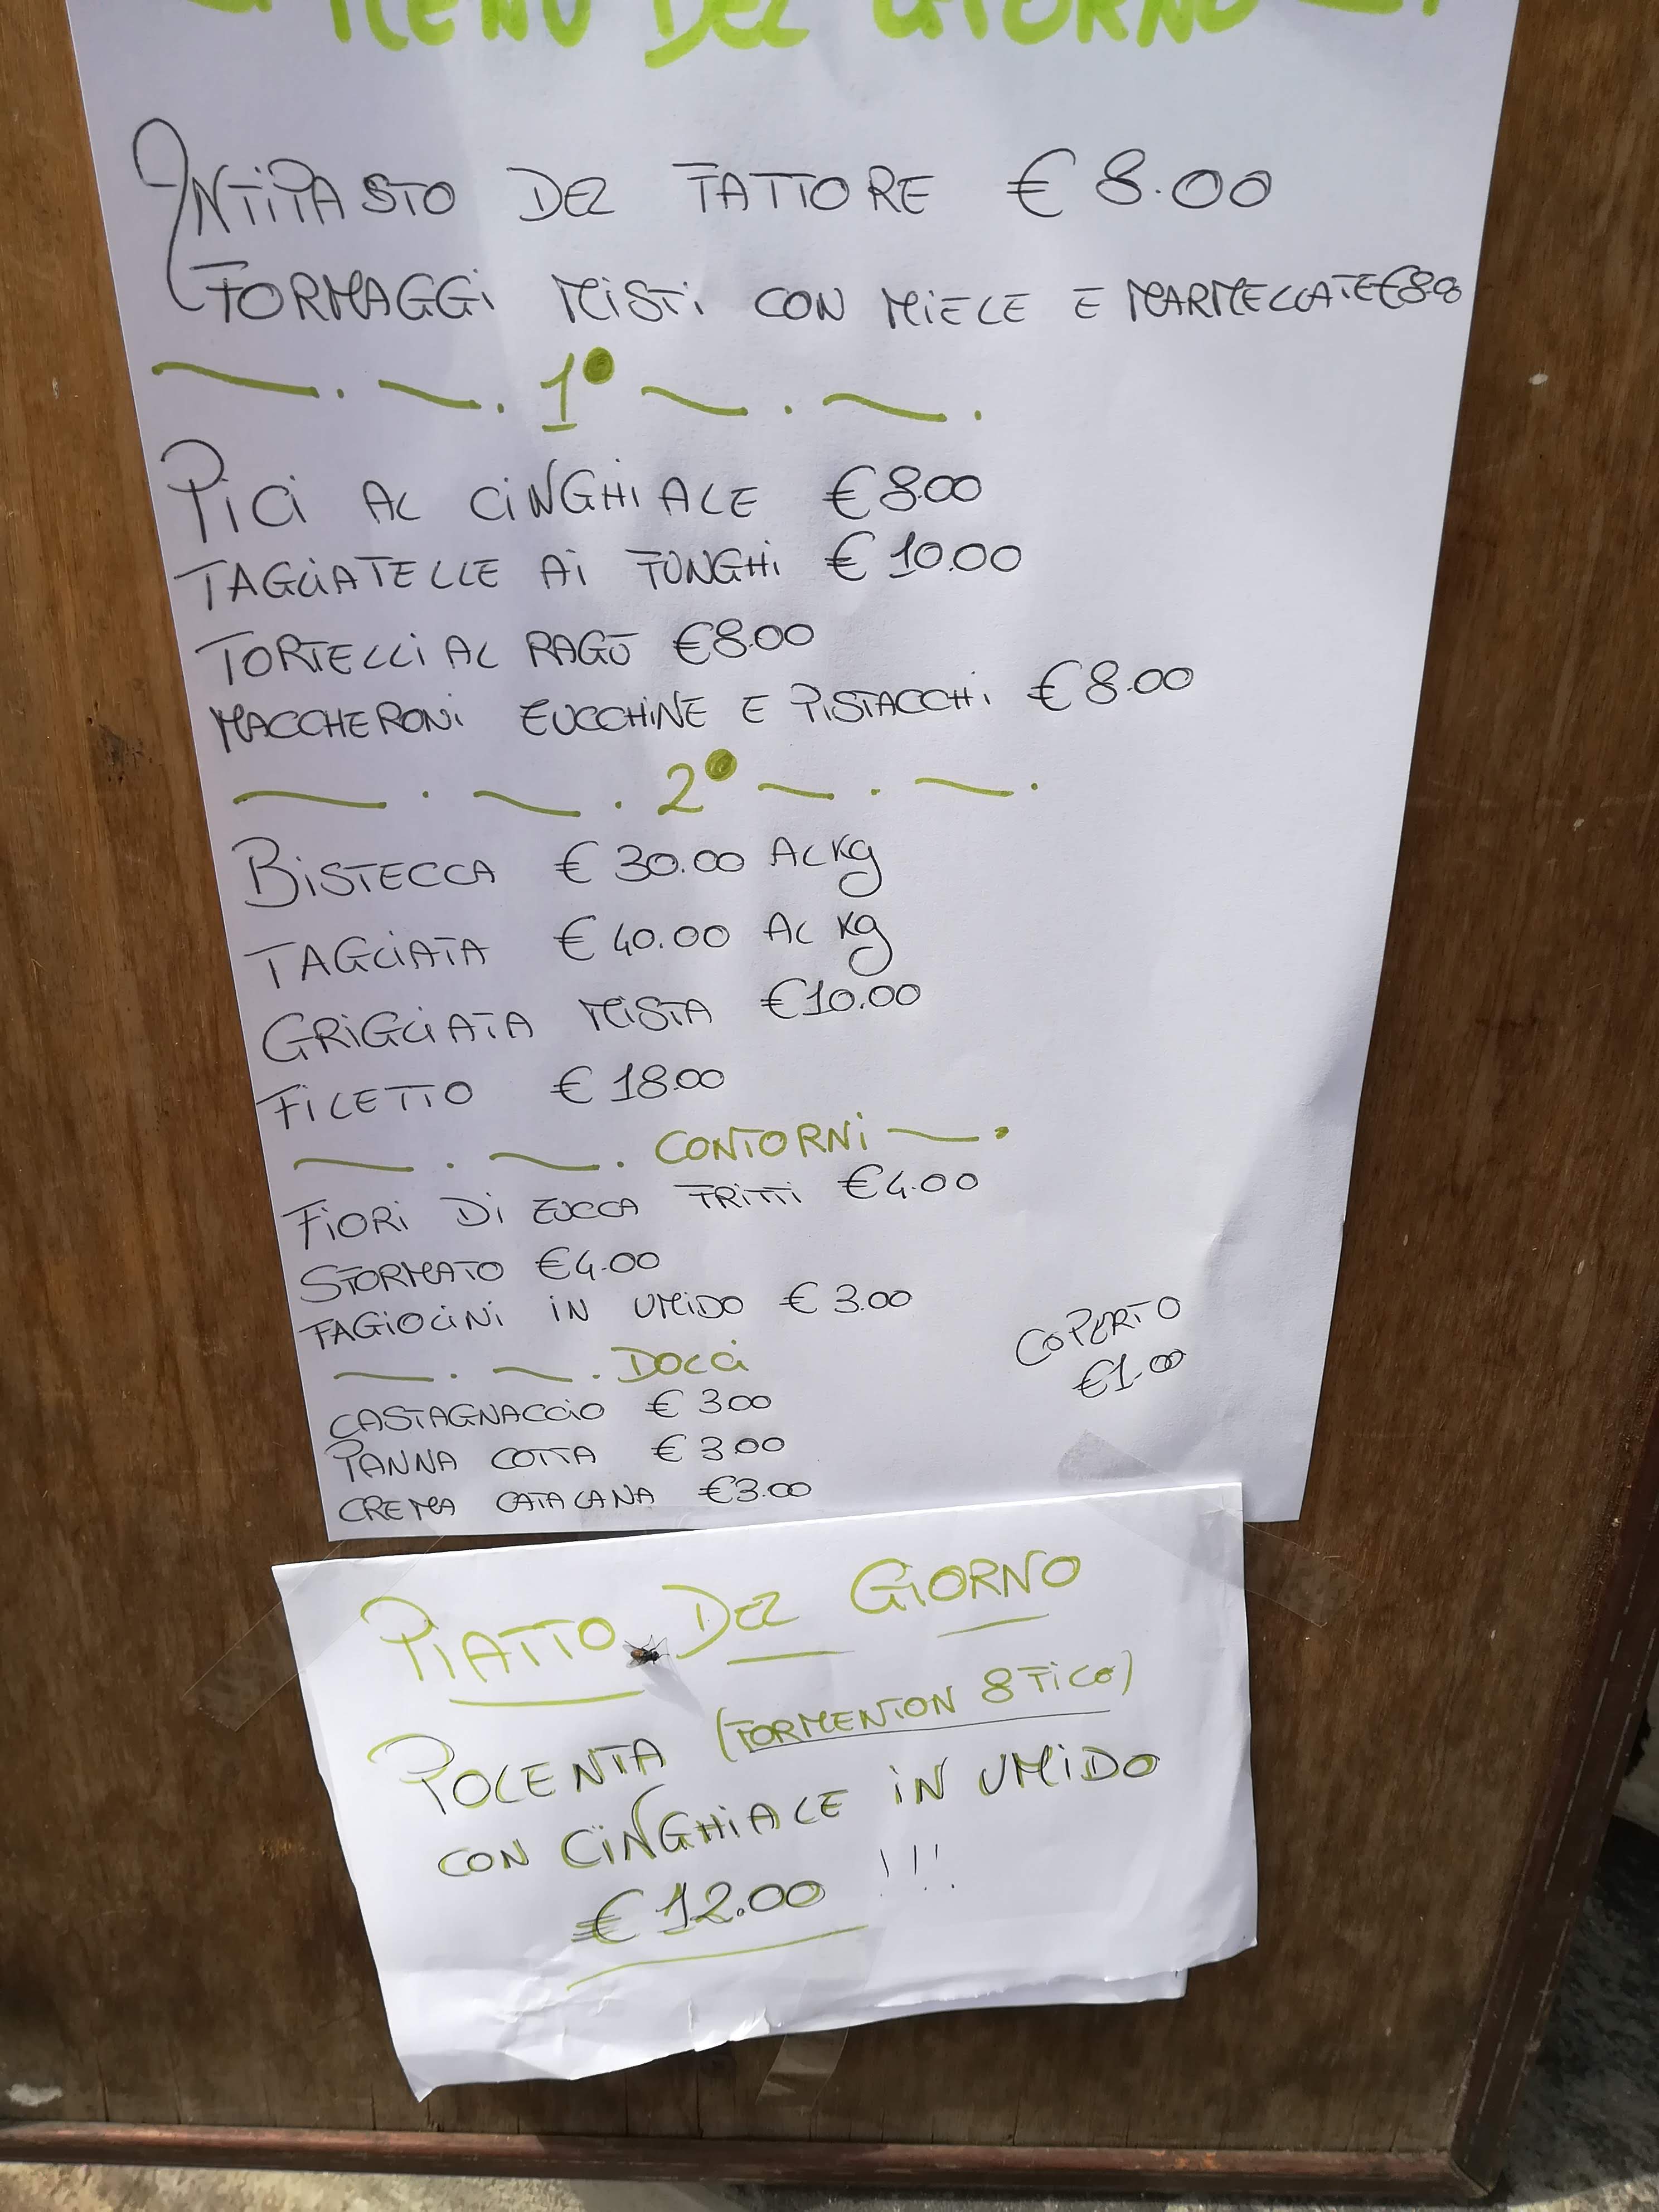 MENU DEL GIORNO
ANTIPASTO DEL FATTORE € 8.00
FORMAGGI MISTI CON MIELE E MARMELLATE €8.00
1°
PICI AL CINGHIALE € 8.00
TAGLIATELLE AI FUNGHI € 10.00
TORTELLI AL RAGÙ €8.00
MACCHERONI ZUCCHINE E PISTACCHI € 8.00
2°
BISTECCA € 30.00 AL Kg
TAGLIATA € 40.00 AL Kg
GRIGLIATA MISTA €10.00
FILETTO € 18.00
CONTORNI
FIORI DI ZUCCA FRITTI €4.00
SFORMATO €4.00
FAGIOLINI IN UMIDO € 3.00
DOLCI
CASTAGNACCIO € 3.00
PANNA COTTA € 3.00
CREMA CATALANA €3.00
COPERTO
€1.00
PIATTO DEL GIORNO
POLENTA (FORMENTON 8 FILE)
CON CINGHIALE IN UMIDO
€ 12.00 !!!